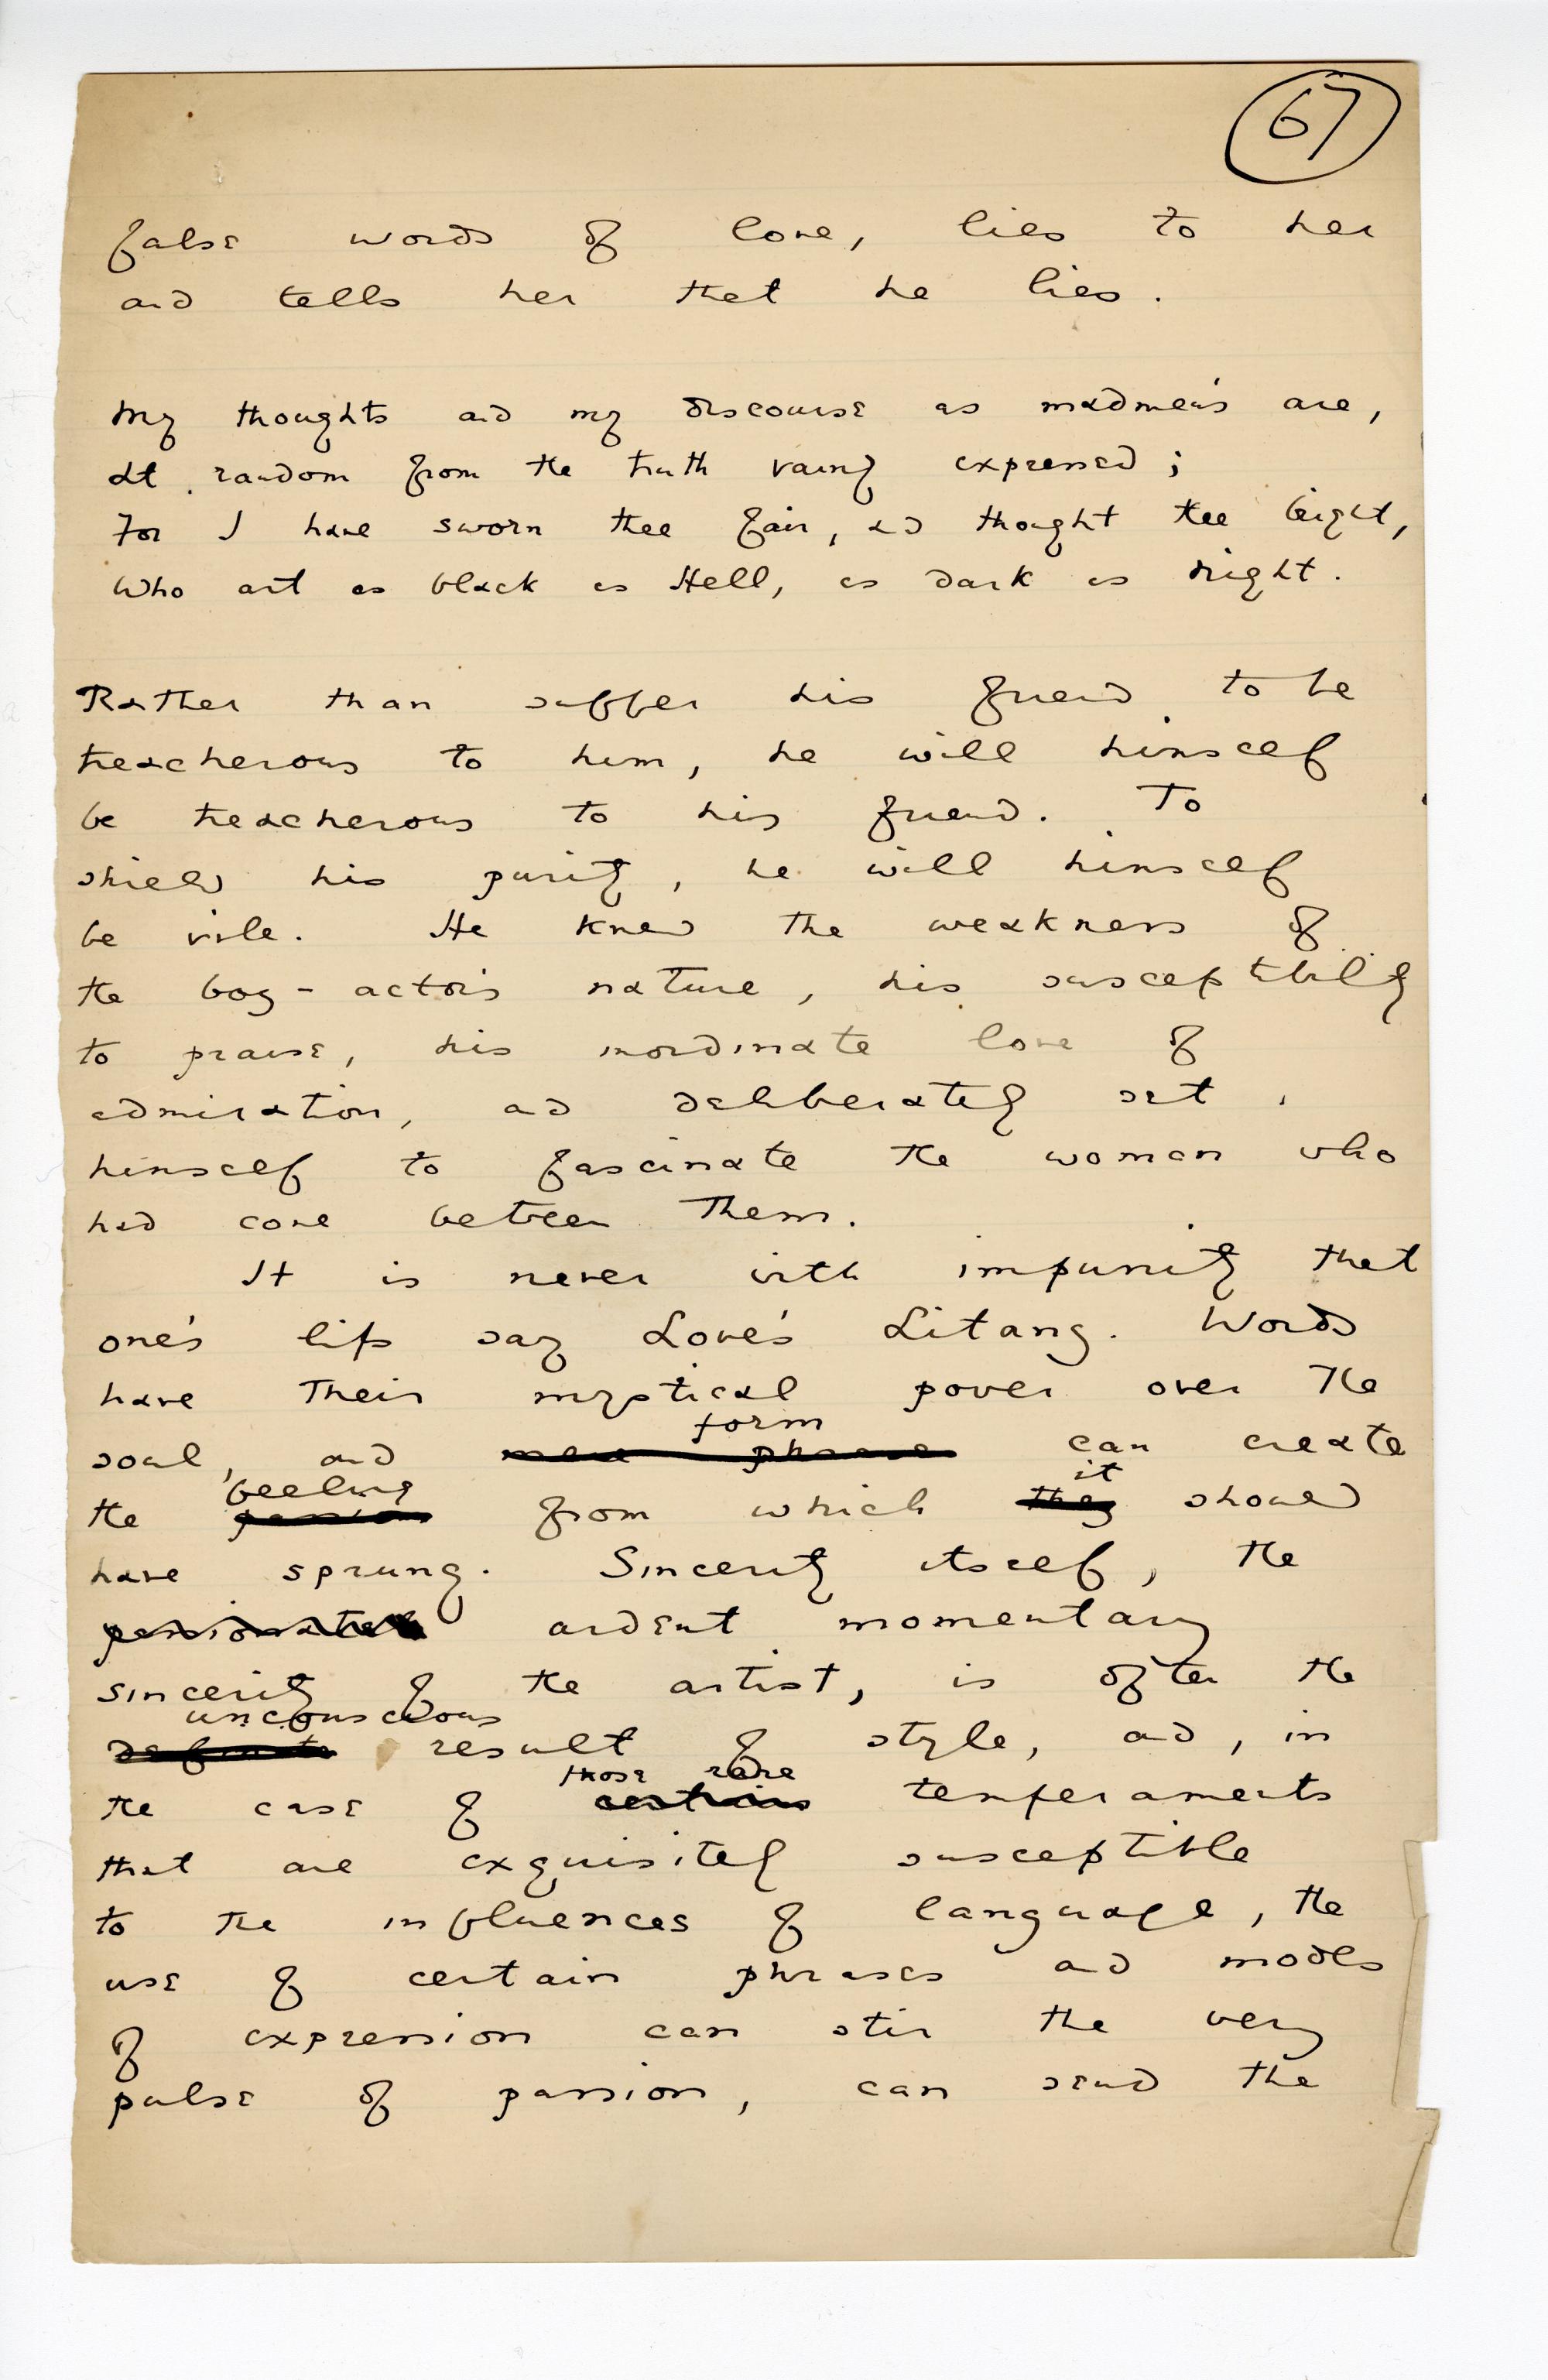 67
false words of love, lies to her
and tells her that he lies.
My thoughts and my discourse as madmen's are,
At random from the truth vainly expressed;
For I have sworn thee fair, and thought thee bright,
Who art as black as Hell, as dark as night.
Rather than suffer his friend to be
treacherous to him, he will himself
be treacherous to his friend. To
shield his purity, he will himself
be vile. He knew the weakness of
the boy-actor's nature, his susceptibility
to praise, his inordinate love of
admiration, and deliberately set
himself to fascinate the woman who
had come between them.
It is never with impunity that
one's lips say Love's Litany. Words
have their mystical power over the
form
soul, and mere phrases can create
feeling it
the passion from which they should
have sprung. Sincerity itself, the
passionate ardent momentary
sincerity of the artist, is often the
unconscious
definite result of style, and, in
those rare
the case of certain temperaments
that are exquisitely susceptible
to the influences of language, the
use of certain phrases and modes
of expression can stir the very
pulse of passion, can send the